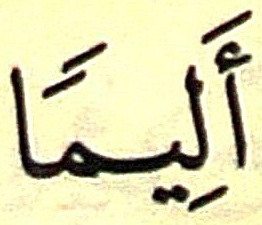 أَلِيمَا